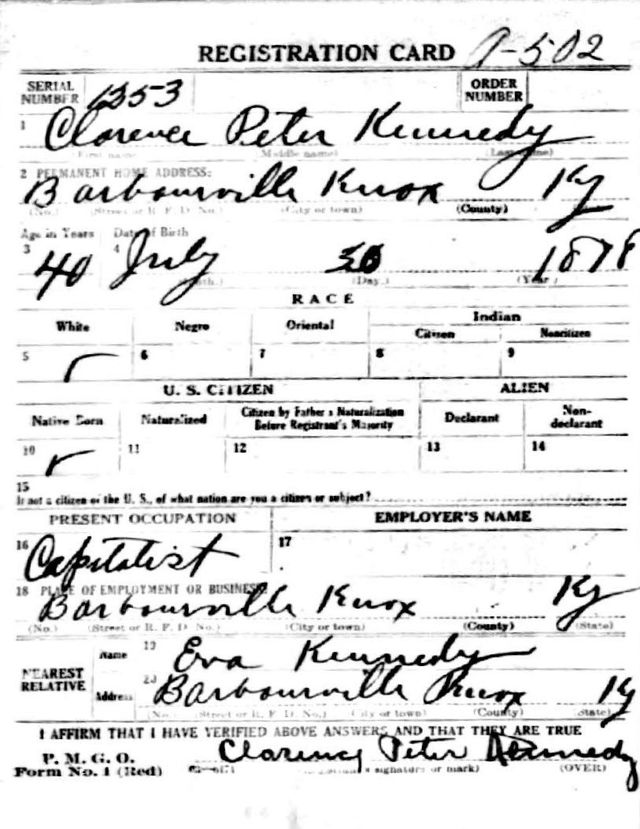 REGISTRATION CARD A-502
SERIAL NUMBER 1353 ORDER NUMBER
1 Clarence Peter Kennedy
First name (Middle name) (Last name)
2 PERMANENT HOME ADDRESS:
Barbourville Knox Ky
(No.) (Street or R. F. D. No.) (City or town) (County)
Age in Years Date of Birth
3 40 4 July 30 1878
(Month.) (Day.) (Year.)
RACE
White Negro Oriental Indian
Citizen Noncitizen
5 6 7 8 9
U. S. CITIZEN ALIEN
Native Born Naturalized Citizen by Father's Naturalization Before Registrant's Majority Declarant Non-declarant
10 11 12 13 14
15
If not a citizen of the U. S., of what nation are you a citizen or subject?
PRESENT OCCUPATION EMPLOYER'S NAME
16 Capitalist 17
18 PLACE OF EMPLOYMENT OR BUSINESS:
Barbourville Knox Ky
(No.) (Street or R. F. D. No.) (City or town) (County) (State)
NEAREST RELATIVE Name 19 Eva Kennedy
Address 20 Barbourville Knox Ky
(No.) (Street or R. F. D. No.) (City or town) (County) (State)
I AFFIRM THAT I HAVE VERIFIED ABOVE ANSWERS AND THAT THEY ARE TRUE
P. M. G. O.
Form No. 1 (Red) Clarence Peter Kennedy
(Registrant's signature or mark) (OVER)